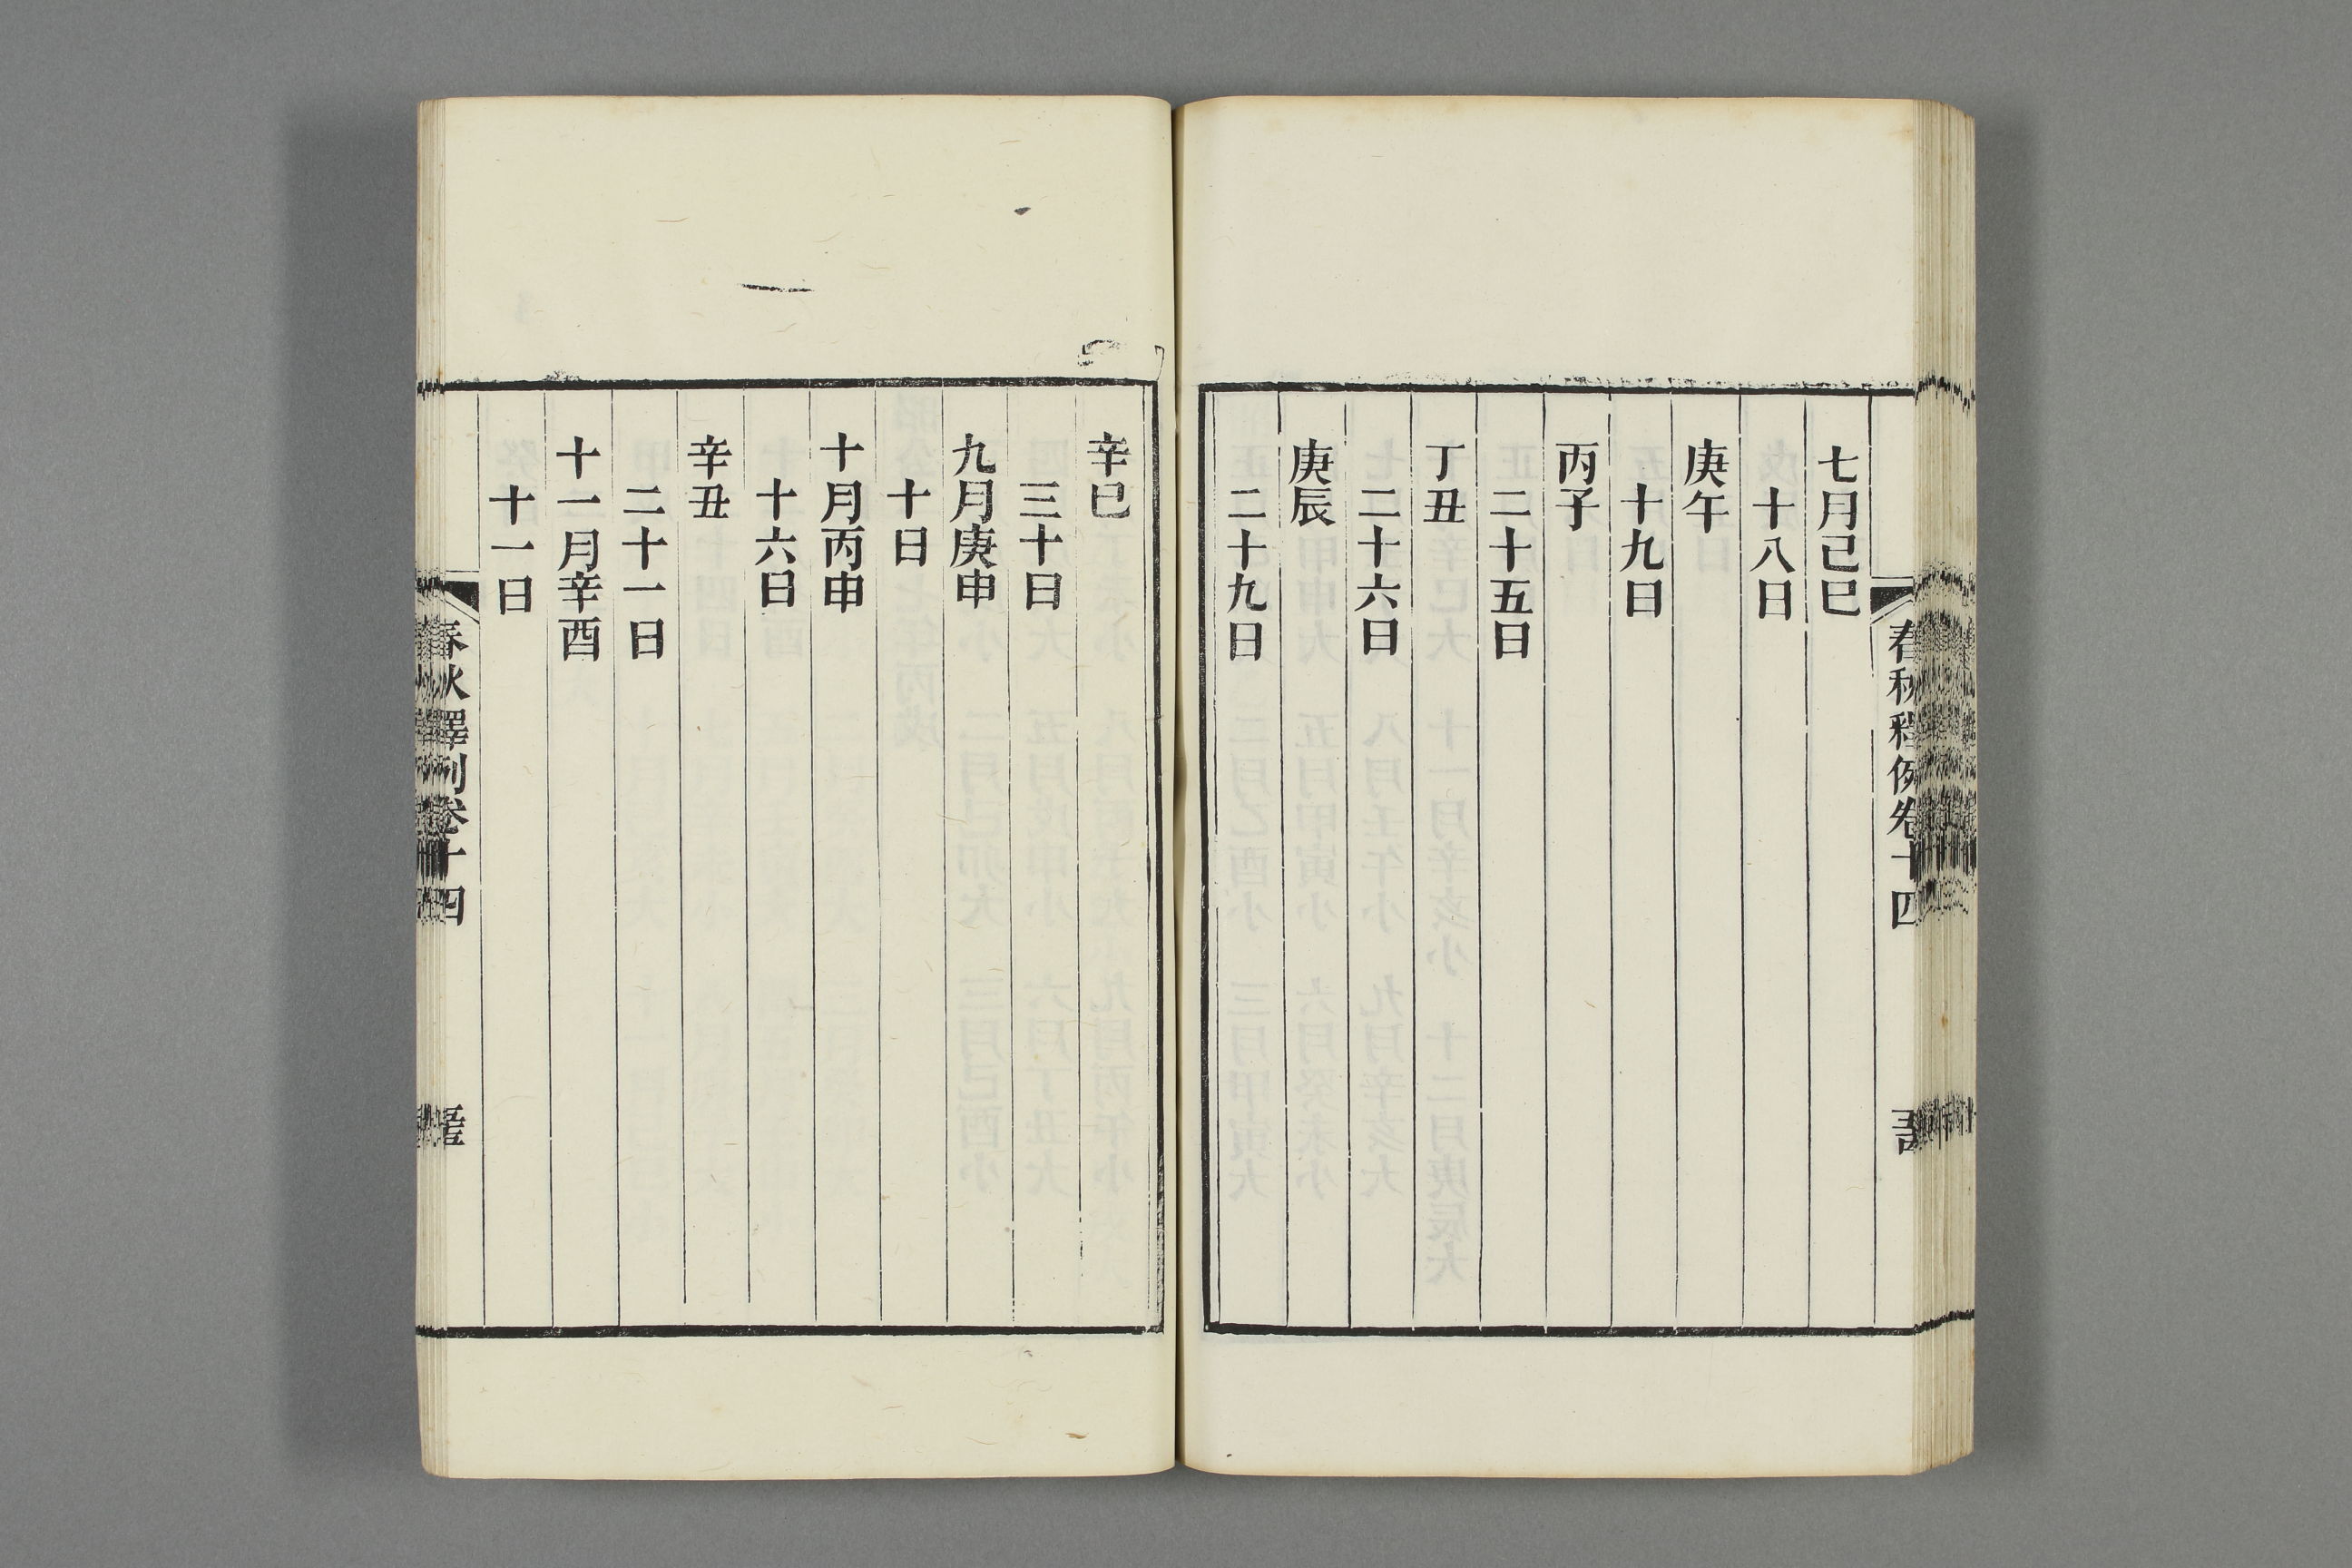 七月己巳
十八日
庚午
十九日
丙子
二十五日
丁丑
二十六日
庚辰
二十九日
春秋釋例卷十四
辛巳
三十日
九月庚申
十日
十月丙申
十六日
辛丑
二十一日
十一月辛酉
十一日
春秋釋例卷十四